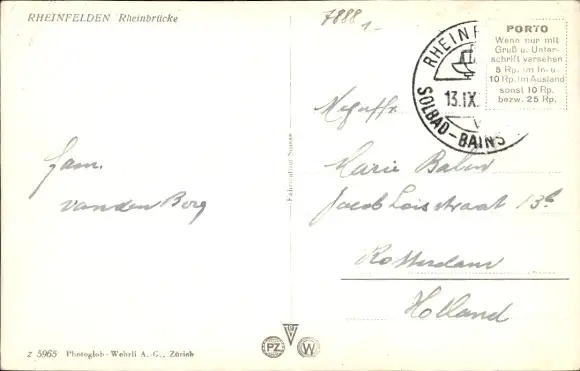 RHEINFELDEN Rheinbrücke
7888
PORTO
Wenn nur mit
Gruß u. Unter-
schrift versehen
5 Rp. im In- u.
10 Rp. im Ausland
sonst 10 Rp.
bezw. 25 Rp.
RHEINF
13.IX.
SOLBAD-BAINS
Fam.
van den Borg
Marie
Jacob Loisstraat 13b
Rotterdam
Holland
Fabrication Suisse
PZ W
Z 5965 Photoglob-Wehrli A.-G., Zürich